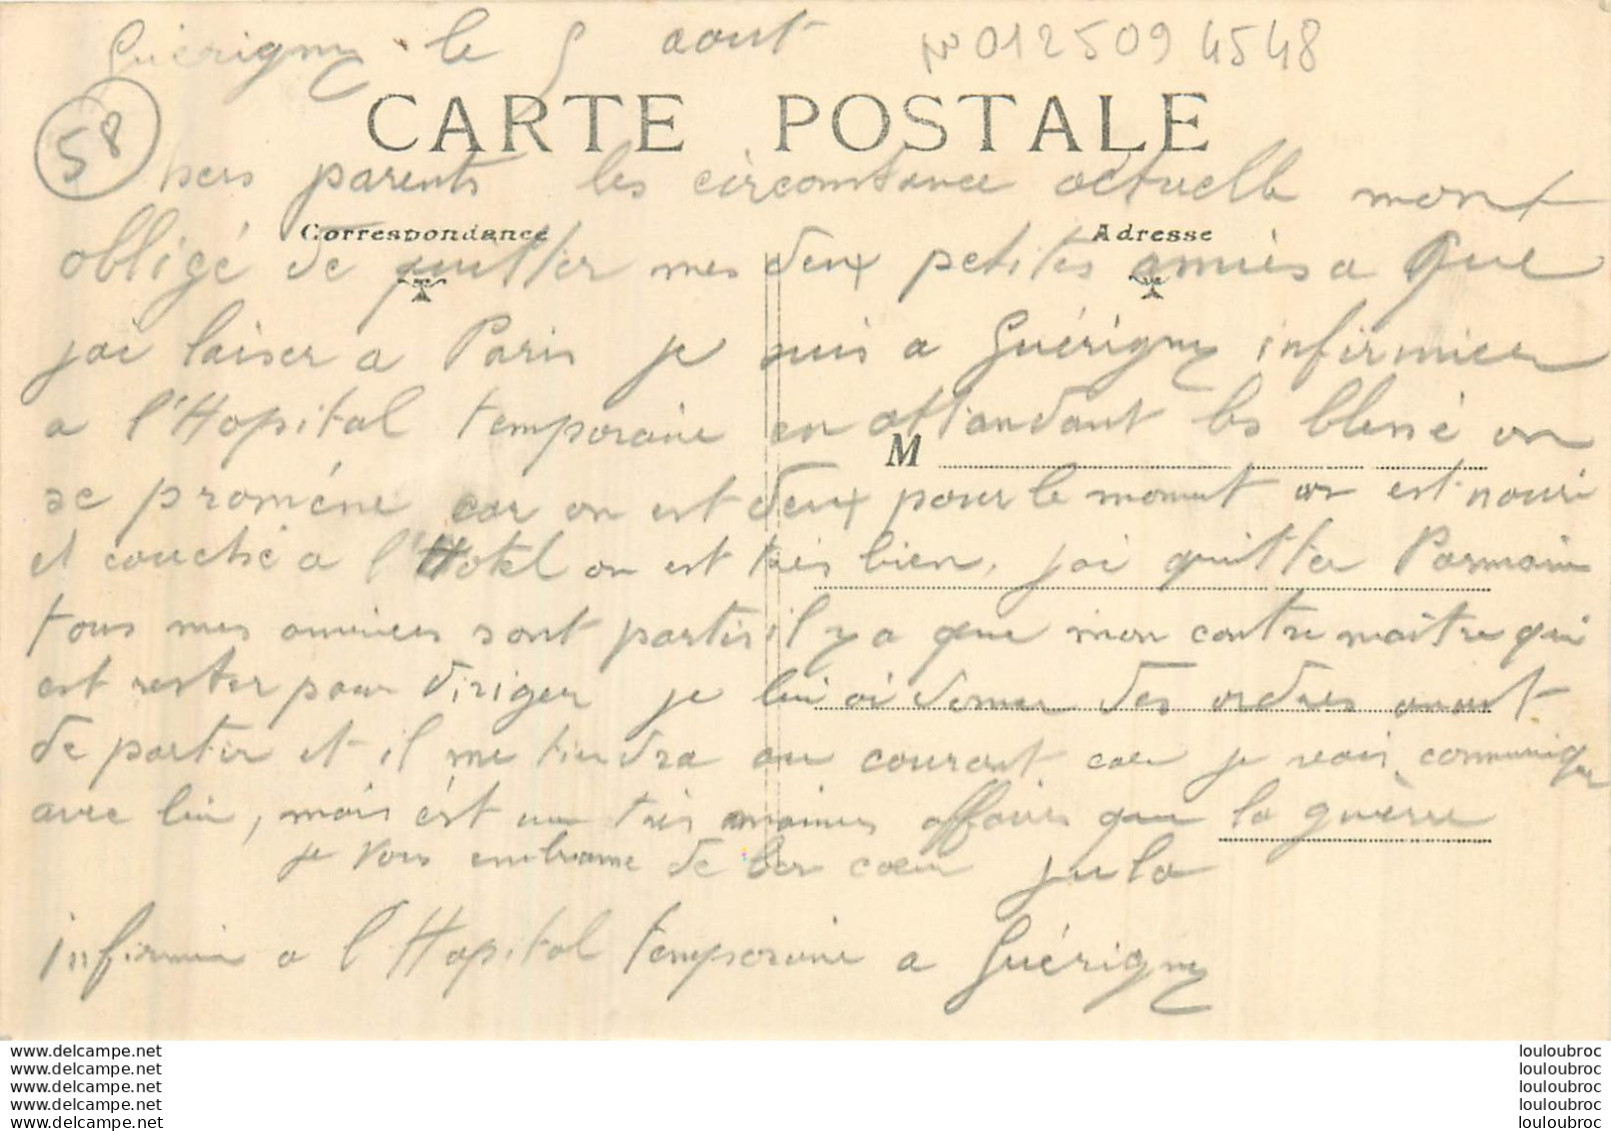 Guérigny le 5 aout
N° 0125094548
CARTE POSTALE
58
hers parents les circomtance actuelle mont
Correspondance
Adresse
obligé de quitter mes deux petites amies a que
jai laiser a Paris je suis a Guérigny infirmier
a l'Hopital temporaire en attandant les blessé on
M
se proméne car on est deux pour le moment on est nouri
et couché a l'Hotel on est très bien, jai quitter Parmain
tous mes ouvriers sont partis il y a que mon contre maitre qui
est rester pour diriger je lui ai donner des ordres avant
de partir et il me tiendra au courant car je vais communiquer
avec lui, mais c'est une très mauvaises affaires que la guerre
je vous embrasse de bon coeur
infirmier a l'Hopital temporaire a Guérigny
www.delcampe.net
www.delcampe.net
www.delcampe.net
www.delcampe.net
www.delcampe.net
louloubroc
louloubroc
louloubroc
louloubroc
louloubroc